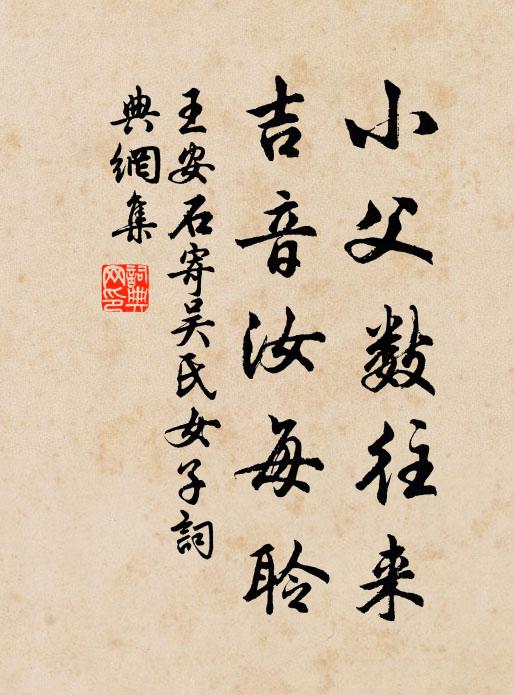 小父数往来
吉音汝每聆
王安石寄吴氏女子詞
典網集
詞典網印